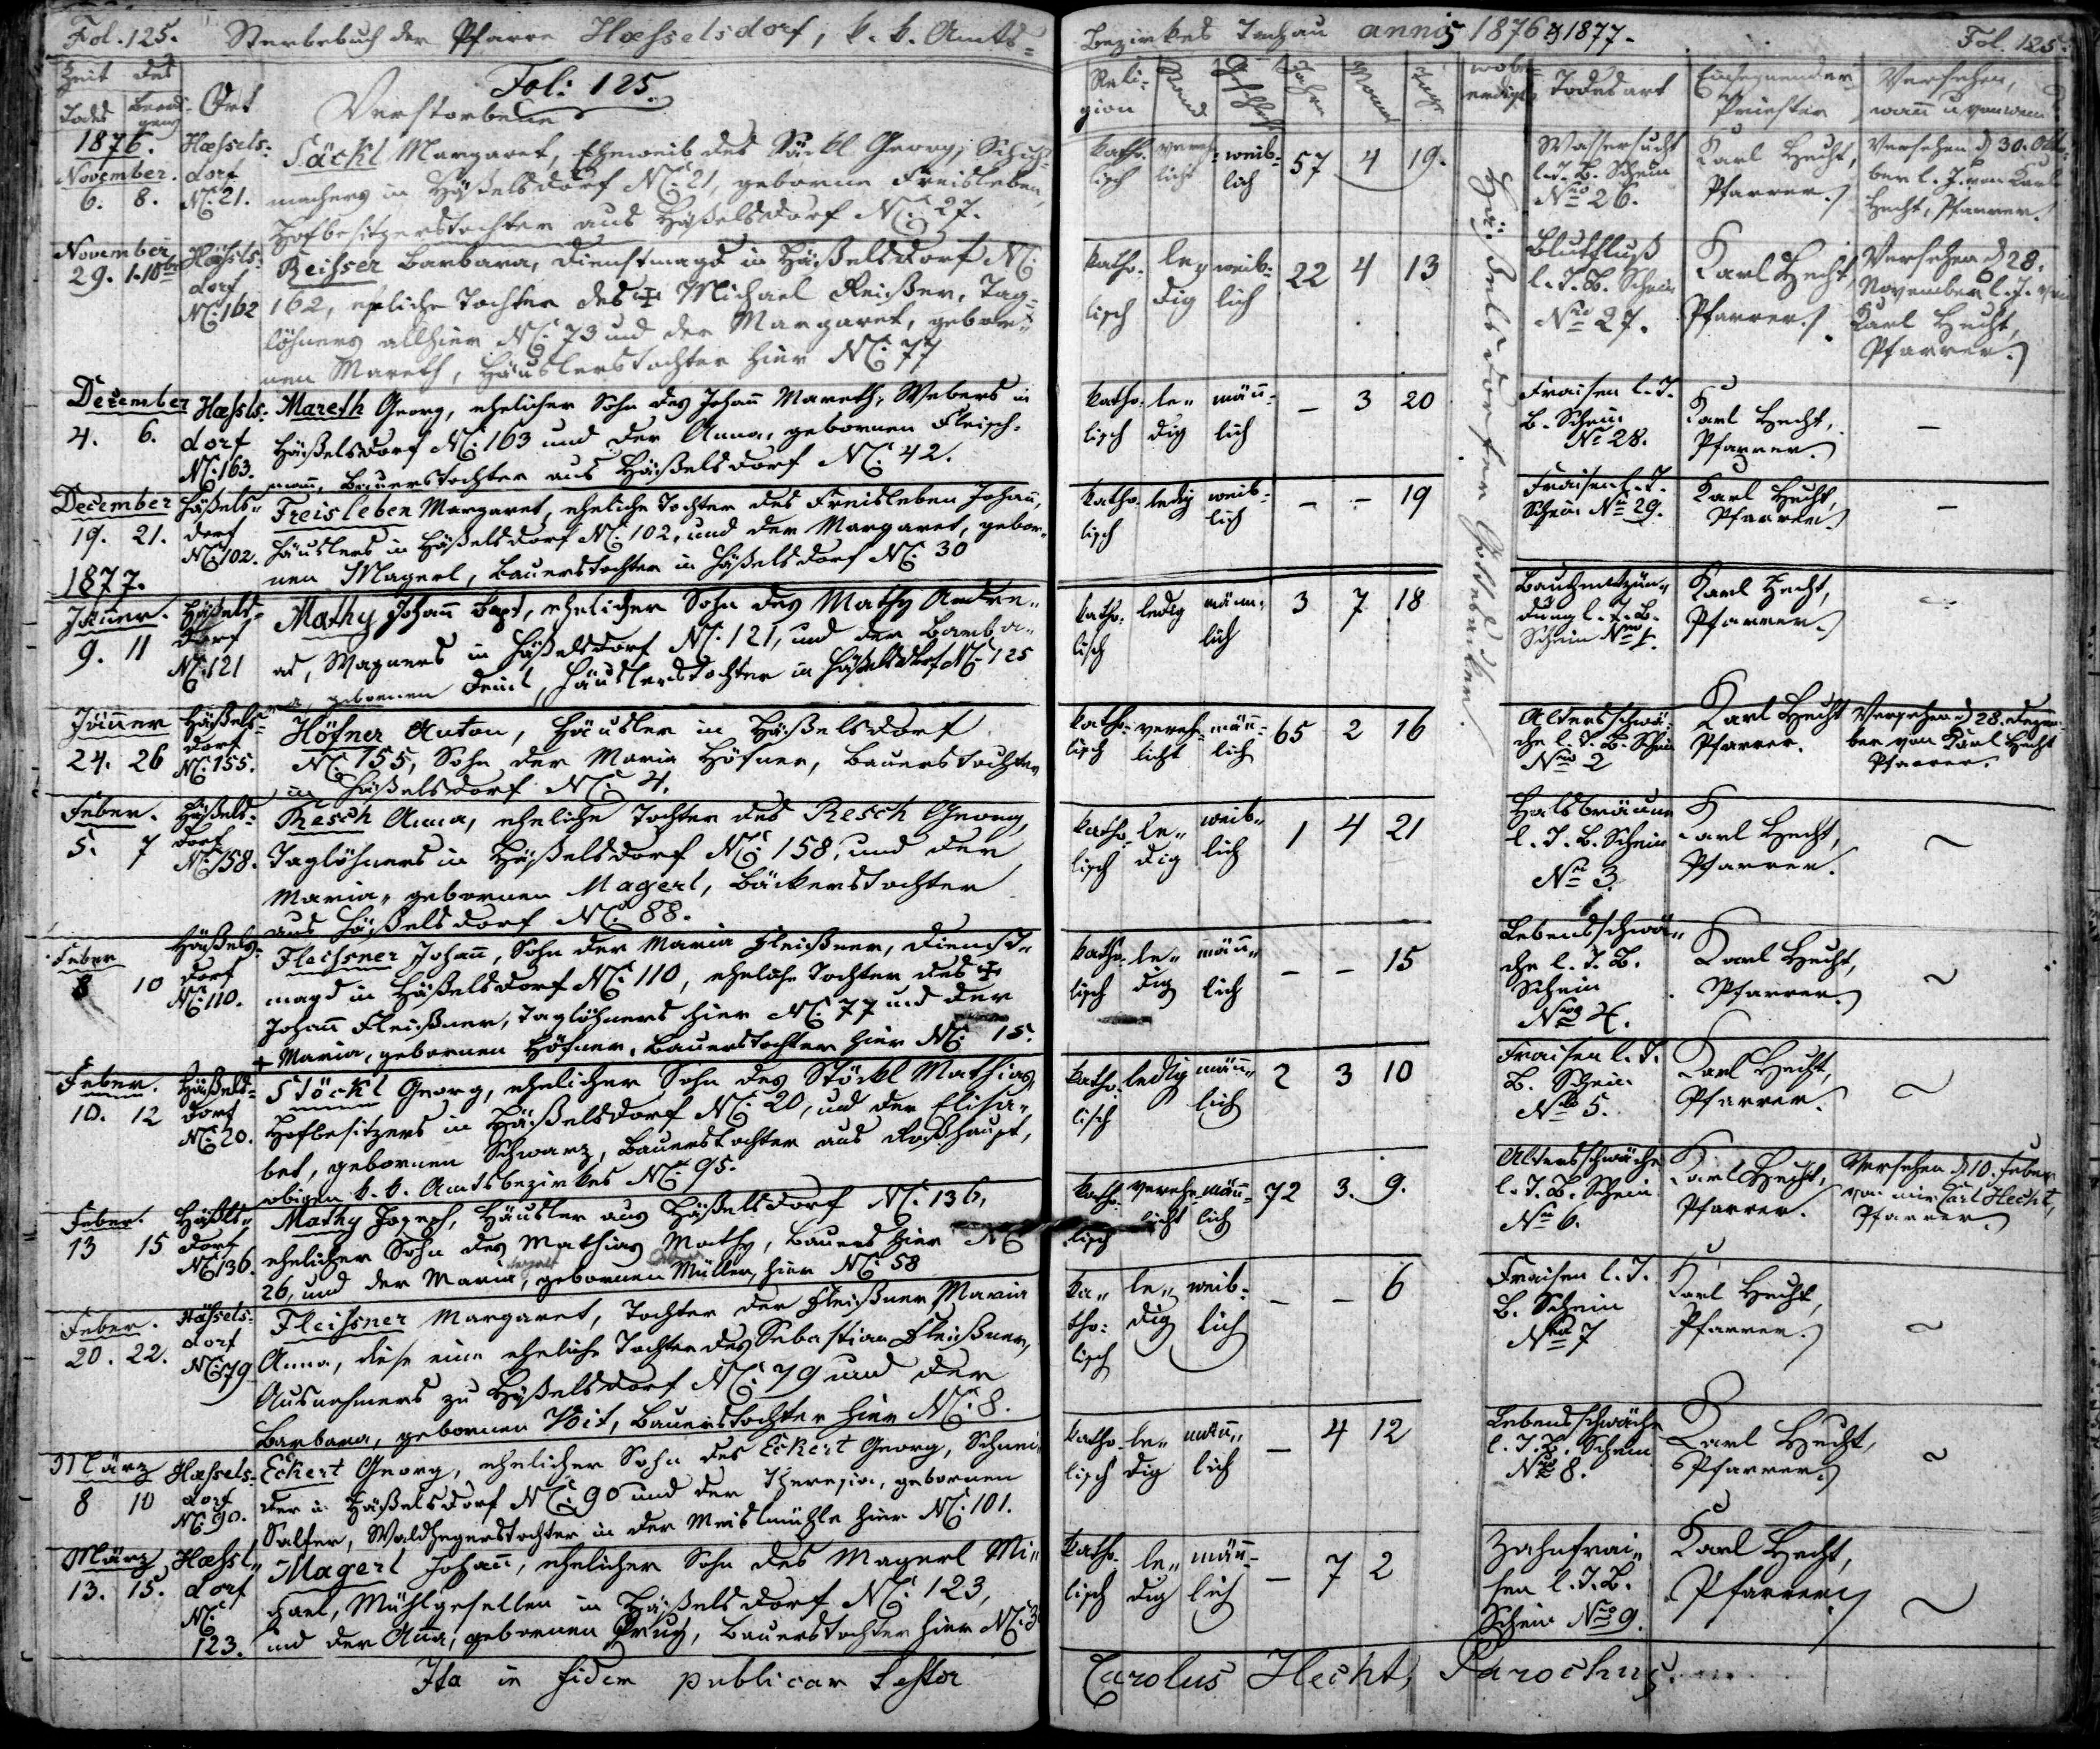 Fol. 125. Sterbebuch der Pfarre Haesselsdorf, k. k. Amts-
Bezirkes Tachau annis 1876 & 1877. Fol. 125.
Fol: 125.
Zeit des
Todes Beerdi-gung Ort Verstorbene
Reli-gion Stand Geschlecht Jahre Monat Tage wo be-erdigt Todesart Einsegnender Priester Versehen, wann u. von wem
Häßelsdorfer Gottesacker.
1876. Haessels-
November. dorf
6. 8. NC. 21.
Säckl Margaret, Eheweib des Säckl Georg, Schuh-
machers in Häßelsdorf NC: 21, geborne Freisleben,
Hofbesitzerstochter aus Häßelsdorf NC: 27.
katho-lisch verehlicht weib-lich 57 4 19.
Wassersucht
l. T. B. Schein
Nro 26.
Karl Hecht,
Pfarrer.
Versehen d 30. Okto-
ber l. J. von Karl
Hecht, Pfarrer.
November Haessls-
29. 1. 10ber dorf
NC: 162
Reisser Barbara, Dienstmagd in Häßelsdorf NC:
162, eheliche Tochter des + Michael Reißer, Tag-
löhners allhier NC: 73 und der Margaret, gebor-
nen Mareth, Häuslerstochter hier NC: 77
katho-lisch le-dig weib-lich 22 4 13
Blutfluß
l. T. B. Schein
Nro 27.
Karl Hecht
Pfarrer.
Versehen d 28.
November l. J. von
Karl Hecht,
Pfarrer.
December Haessls-
4. 6. dorf
NC: 163.
Mareth Georg, ehelicher Sohn des Johann Mareth, Webers in
Häßelsdorf NC: 163 und der Anna, gebornen Fleisch-
mann, Bauerstochter aus Häßelsdorf NC: 42.
katho-lisch le-dig männ-lich – 3 20
Fraisen l. T.
B. Schein
No 28.
Karl Hecht,
Pfarrer.
–
December Häßels-
19. 21. dorf
NC: 102.
Freisleben Margaret, eheliche Tochter des Freisleben Johann,
Häuslers in Häßelsdorf NC: 102, und der Margaret, gebor-
nen Magerl, Bauerstochter in Häßelsdorf NC: 30
katho-lisch ledig weib-lich – – 19
Fraisen l. T.
Schein No 29.
Karl Hecht,
Pfarrer.
–
1877.
Jäner. Häßels-
9. 11 dorf
NC: 121
Mathy Johann Bapt, ehelicher Sohn des Mathy Andre-
as, Wagners in Häßelsdorf NC: 121, und der Barba-
ra, gebornen Deml, Häuslerstochter in Häßelsdorf NC: 125
katho-lisch ledig männ-lich 3 7 18
Bauchentzün-
dung l. T. B.
Schein Nro 1.
Karl Hecht,
Pfarrer.
Jänner Häßels-
24. 26 dorf
NC: 155.
Höfner Anton, Häusler in Häßelsdorf
NC: 155, Sohn der Maria Höfner, Bauerstochter
in Häßelsdorf NC: 4.
katho-lisch vereh-licht männ-lich 65 2 16
Altersschwä-
che l. T. B. Schein
Nro 2
Karl Hecht
Pfarrer.
Versehen d 28. Dezem-
ber von Karl Hecht
Pfarrer.
Feber. Häßels-
5. 7 dorf
NC: 158.
Resch Anna, eheliche Tochter des Resch Georg,
Taglöhners in Häßelsdorf NC: 158, und der
Maria, gebornen Magerl, Bäckerstochter
aus Häßelsdorf NC: 88.
katho-lisch le-dig weib-lich 1 4 21
Halsbräune
l. T. B. Schein
No 3.
Karl Hecht,
Pfarrer.
~
Feber Häßels-
8 10 dorf
NC: 110.
Fleissner Johann, Sohn der Maria Fleißner, Dienst-
magd in Häßelsdorf NC: 110, eheliche Tochter des +
Johann Fleißner, Taglöhners hier NC: 77 und der
+ Maria, gebornen Höfner, Bauerstochter hier NC: 15.
katho-lisch le-dig männ-lich – – 15
Lebensschwä-
che l. T. B.
Schein
Nro 4.
Karl Hecht,
Pfarrer.
~
Feber. Häßels-
10. 12 dorf
NC: 20.
Stöckl Georg, ehelicher Sohn des Stöckl Mathias,
Hofbesitzers in Häßelsdorf NC: 20, und der Elisa-
bet, gebornen Schwarz, Bauerstochter aus Roßhaupt,
obigen k. k. Amtsbezirkes NC: 95.
katho-lisch ledig männ-lich 2 3 10
Fraisen l. T.
B. Schein
No 5.
Karl Hecht,
Pfarrer.
~
Feber. Häßls-
13 15 dorf
NC: 136.
Mathy Joseph, Häusler aus Häßelsdorf NC: 136,
ehelicher Sohn des Mathias Mathy, Bauers hier NC
26, und der Maria, gebornen Müller, hier NC: 58
katho-lisch verehe-licht männ-lich 72 3. 9.
Altersschwäche
l. T. B. Schein
No 6.
Karl Hecht,
Pfarrer.
Versehen d 10. Feber
von mir Karl Hecht,
Pfarrer.
Feber. Hässels-
20. 22. dorf
NC: 79
Fleissner Margaret, Tochter der Fleißner Maria
Anna, diese eine eheliche Tochter des Sebastian Fleißner,
Ausnehmers zu Häßelsdorf NC: 79 und der
Barbara, gebornen Voit, Bauerstochter hier NC: 8.
ka-tho-lisch le-dig weib-lich – – 6
Fraisen l. T.
B. Schein
Nro 7
Karl Hecht,
Pfarrer.
~
März Haessels-
8 10 dorf
NC: 90.
Eckert Georg, ehelicher Sohn des Eckert Georg, Schnei-
der in Häßelsdorf NC: 90 und der Theresia, gebornen
Salfer, Waldhegerstochter in der Meislmühle hier NC: 101.
katho-lisch le-dig männ-lich – 4 12
Lebensschwäche
l. T. B. Schein
No 8.
Karl Hecht,
Pfarrer.
~
März Haessl-
13. 15. dorf
NC:
123.
Magerl Johann, ehelicher Sohn des Magerl Mi-
chael, Mühlgesellen in Häßelsdorf NC: 123,
und der Anna, gebornen Prug, Bauerstochter hier NC: 3
katho-lisch le-dig männ-lich – 7 2
Zahnfrai-
sen l. T. B.
Schein Nro 9.
Karl Hecht,
Pfarrer.
~
Ita in fidem publicam testor Carolus Hecht, Parochus.